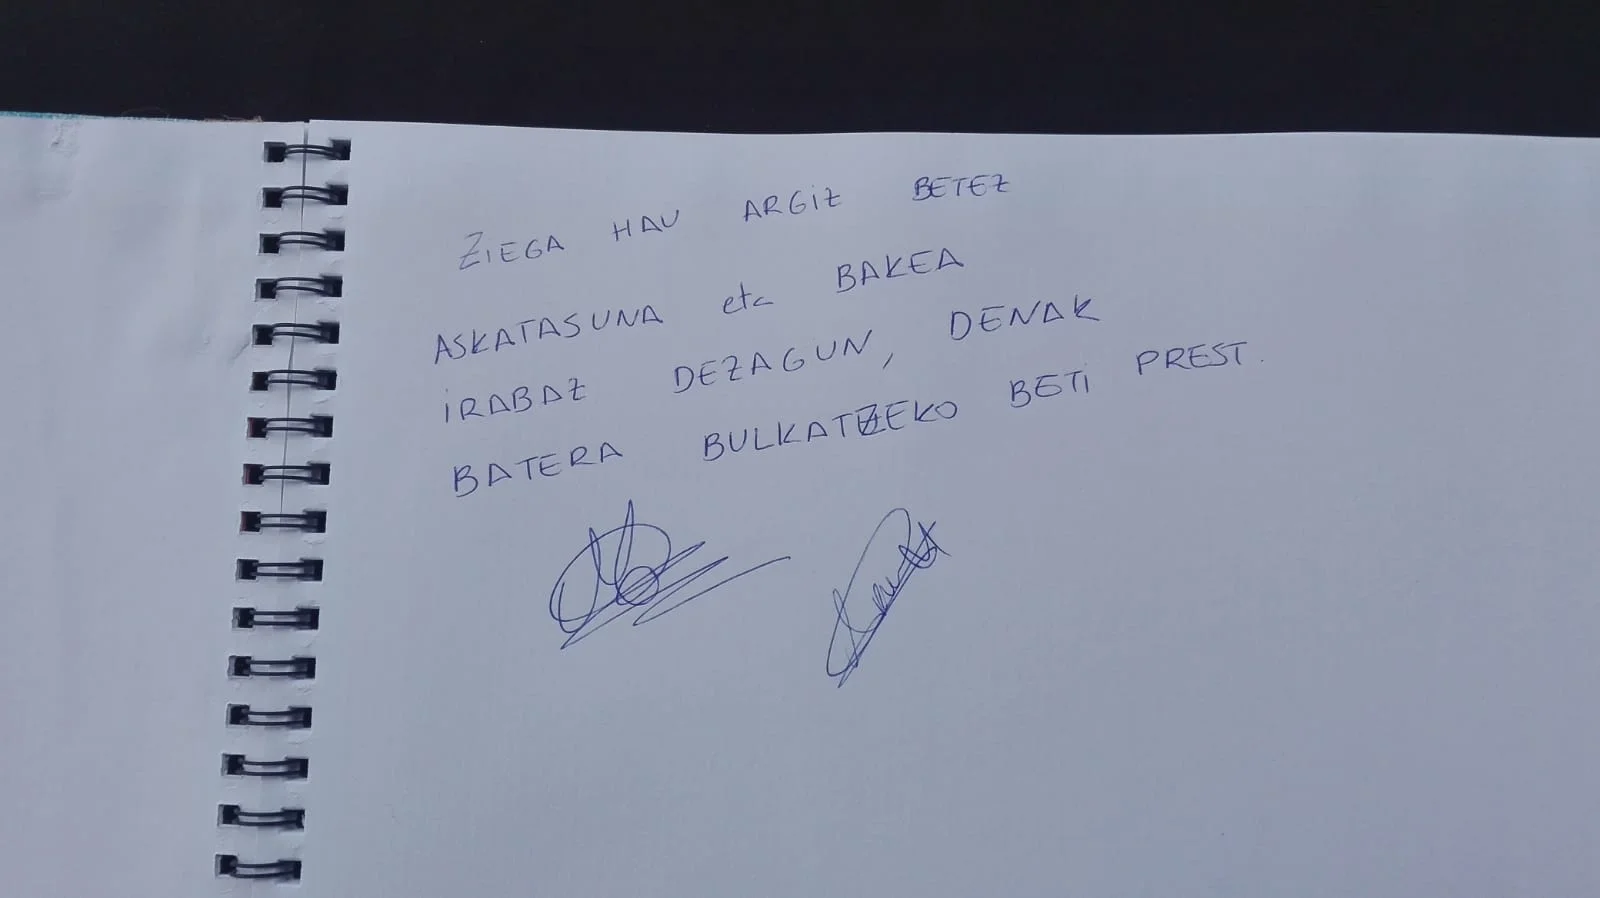 ZIEGA HAU ARGIZ BETEZ
ASKATASUNA eta BAKEA
IRABAZ DEZAGUN, DENAK
BATERA BULKATZEKO BETI PREST.